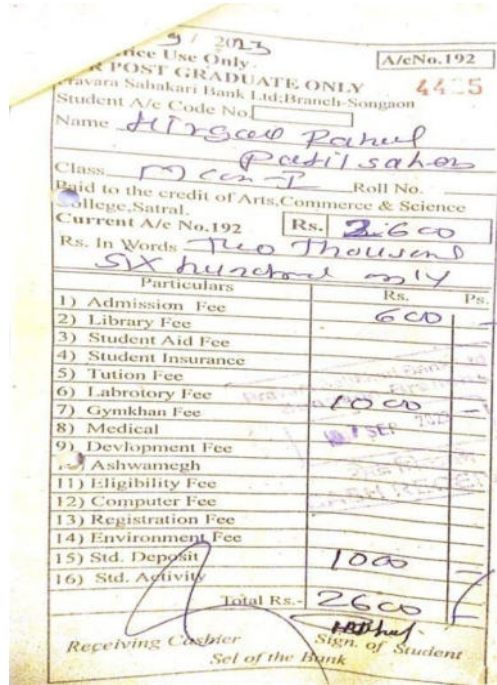 9 / 2023
ffice Use Only.
R POST GRADUATE ONLY
A/cNo.192
Pravara Sahakari Bank Ltd;Branch-Songaon
Student A/c Code No.
Name Hirgal Rahul
Patilsaheb
Class M Com-I Roll No.
Paid to the credit of Arts,Commerce & Science
College,Satral.
Current A/c No.192 Rs. 2600
Rs. In Words Two Thousand
Six hundred only
Particulars Rs. Ps.
1) Admission Fee 600 -
2) Library Fee
3) Student Aid Fee
4) Student Insurance
5) Tution Fee
6) Labrotory Fee
7) Gymkhan Fee 1000 -
8) Medical
9) Devlopment Fee
Ashwamegh
11) Eligibility Fee
12) Computer Fee
13) Registration Fee
14) Environment Fee
15) Std. Deposit 1000 -
16) Std. Activity
Total Rs.- 2600
Receiving Cashier Sign. of Student
Sel of the Bank